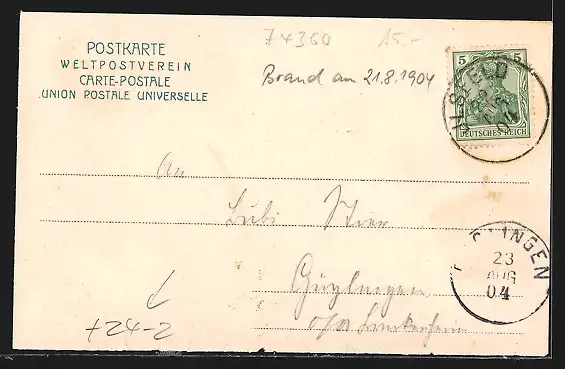 74360 15.-
POSTKARTE
WELTPOSTVEREIN
CARTE-POSTALE
UNION POSTALE UNIVERSELLE
Brand am 21.8.1904
5 5
ILSFELD
AUG
04
DEUTSCHES REICH
An
Güglingen
INGEN
23
AUG
04
+24-2